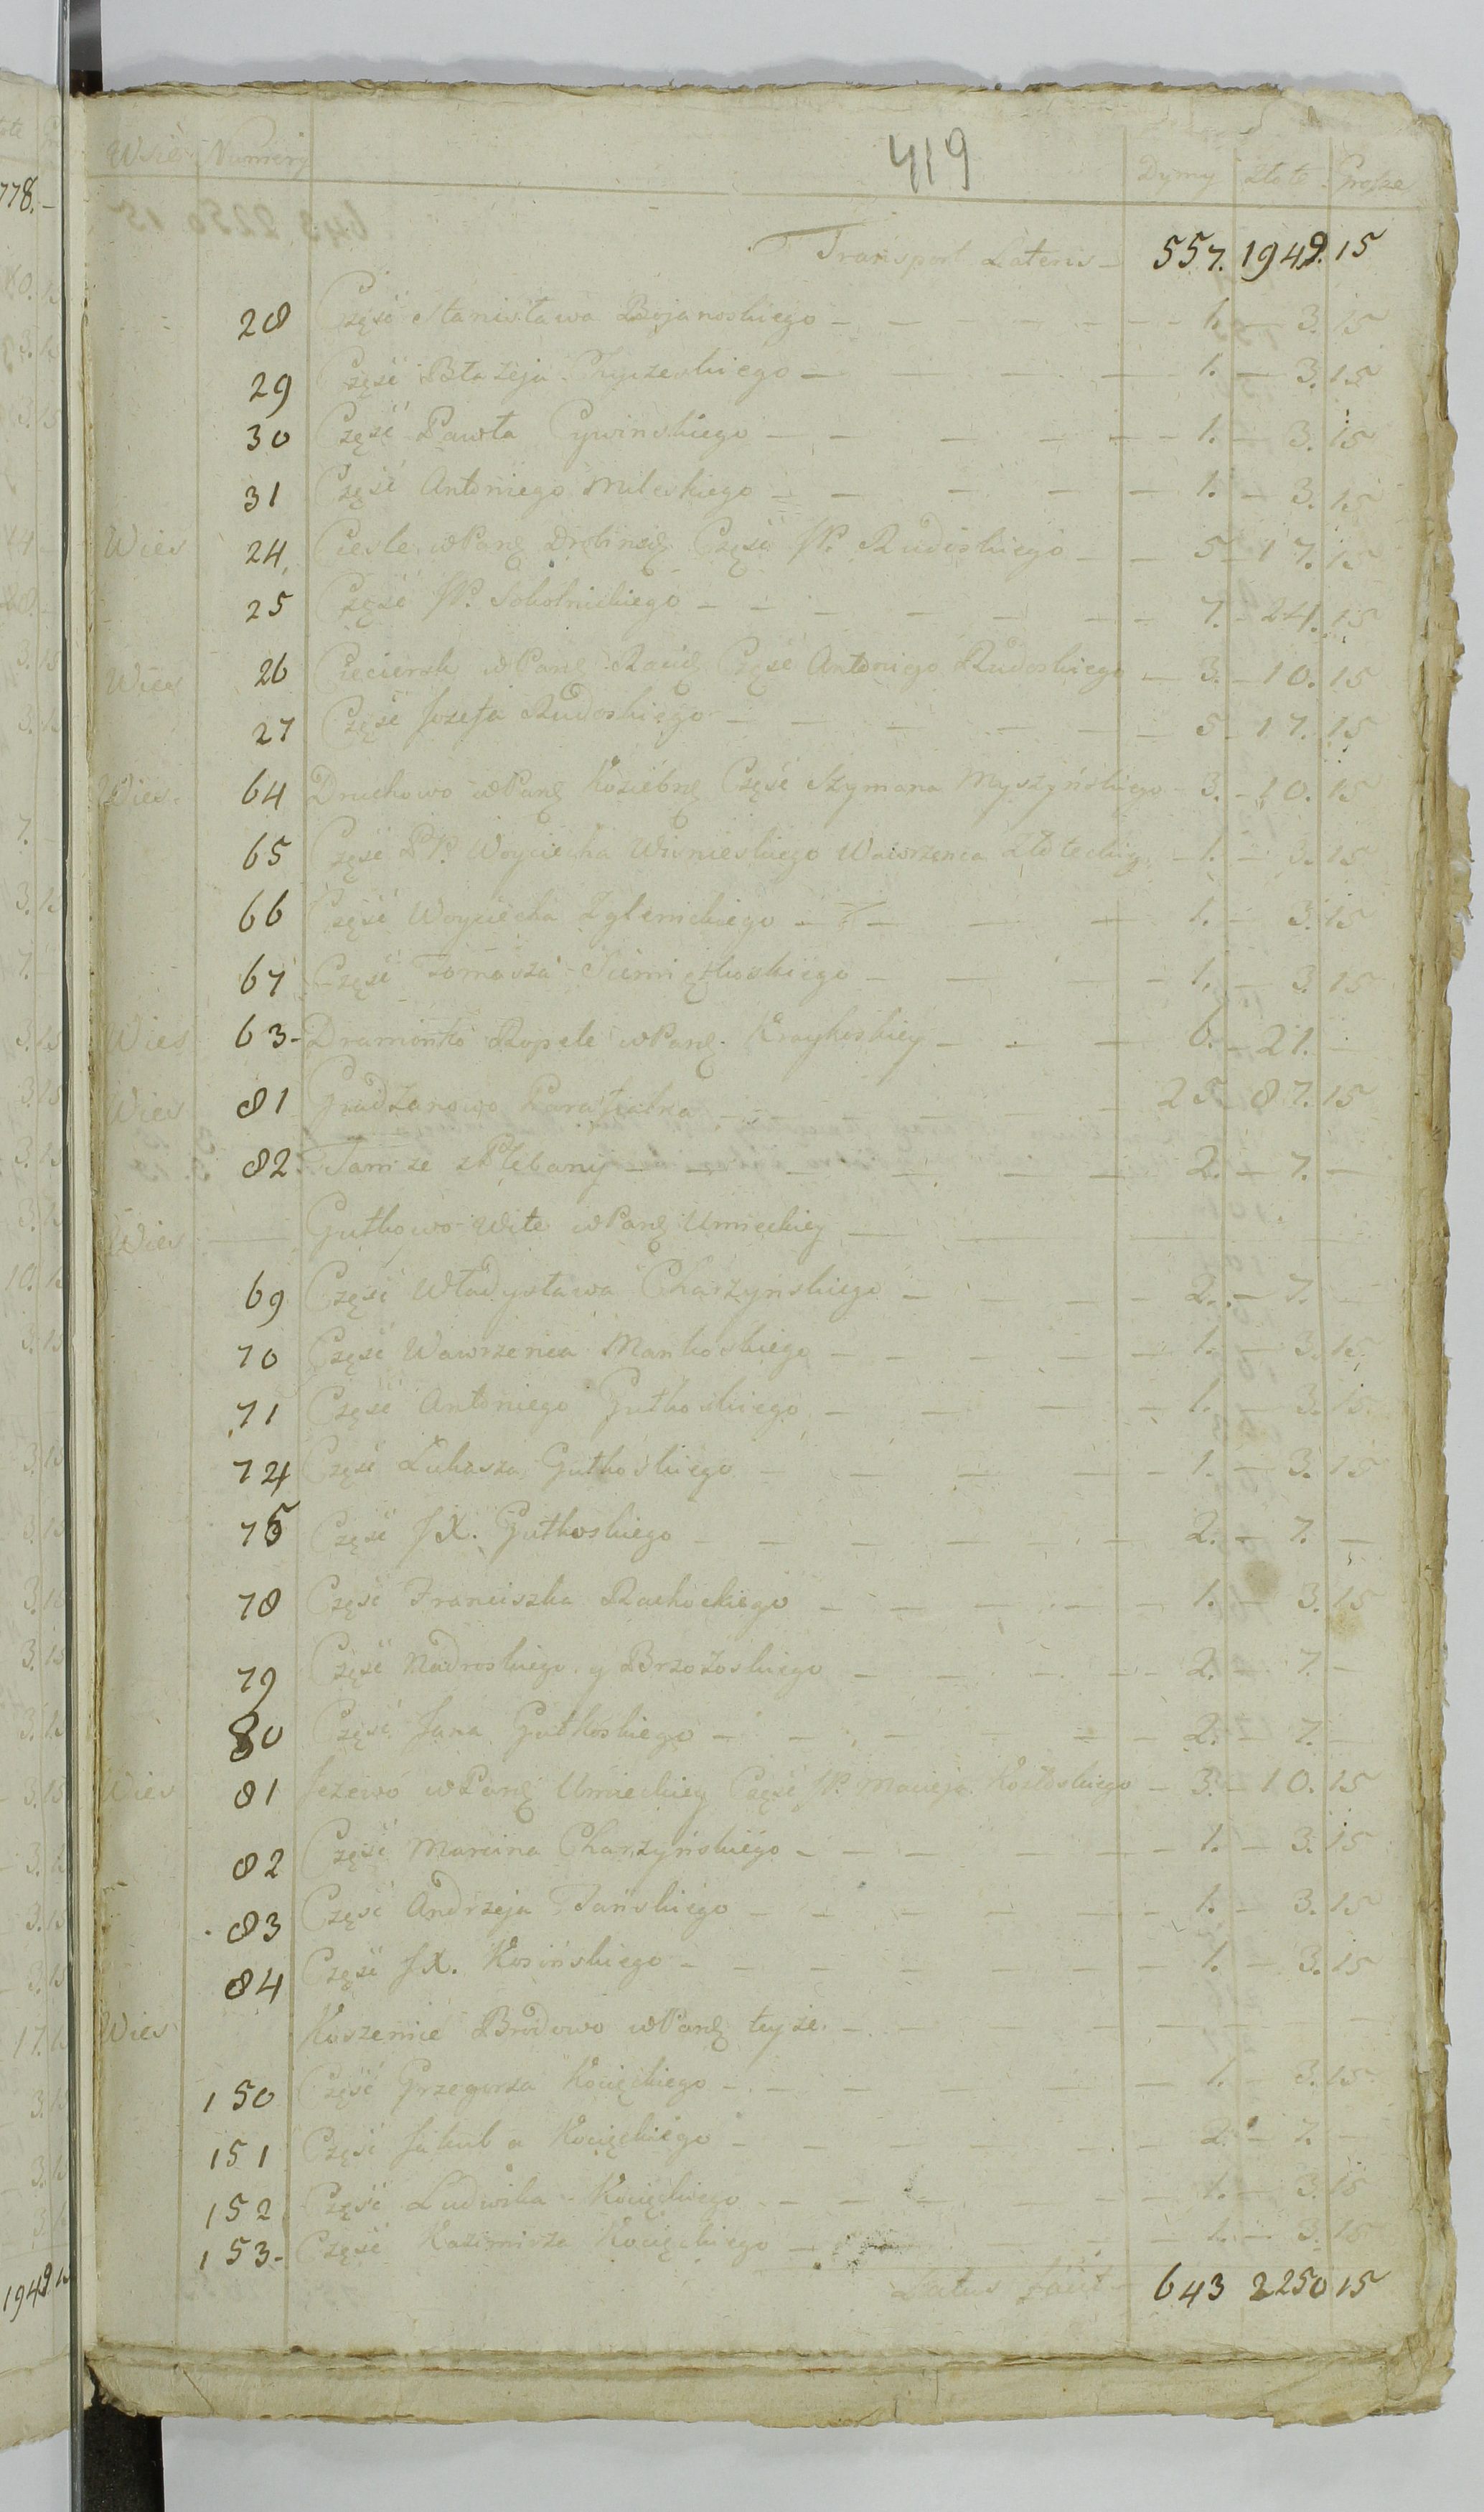 419
Wsie Numery Dymy Złote Grosze
Transport Lateris 557. 1949. 15
28 Część Stanisława Bojanoskiego 1. 3. 15
29 Część Błażeja 1. 3. 15
30 Część Pawła Cywinskiego 1. 3. 15
31 Część Antoniego Mileskiego 1. 3. 15
Wies 24. Ciesle w Parę Drobinskę Część JP. Rudoskiego 5 17. 15
25 Część JP. Sokolnickiego 7. 24. 15
Wies 26 Cieciersk w Parę Racię Część Antoniego Rudoskiego 3. 10. 15
27 Część Jozefa Rudoskiego 5 17. 15
Wies 64 Druchowo w Parę Koziebrę Część Szymana Myszyńskiego 3. 10. 15
65 Część PP. Woyciecha Wisnieskiego Wawrzenca 1. 3. 15
66 Część Woyciecha 1. 3. 15
67 Część Tomasza 1. 3. 15
Wies 63 Dramonko Rzpele w Parę 6. 21. —
Wies 81 Gradzanowo Parafialna 25 87. 15
82. Tamze z Plebanij 2. 7. —
Wies Gutkowo Wite w Parę Unieckiey
69 Część Władysława Charzynskiego 2. 7. —
70 Część Wawrzenca Mankoskiego 1. 3. 15
71 Część Antoniego Gutkoskiego 1. 3. 15.
74 Część Lukasza Gutkoskiego 1. 3. 15
75 Część JX. Gutkoskiego 2. 7. —
78 Część Franciszka Rachockiego 1. 3. 15
79 Część Nadroskiego y Brzozoskiego 2. 7. —
80 Część Jana Gutkoskiego 2. 7. —
Wies 81 Jezewo w Parę Unieckiey Część JP. Macieja 3. 10. 15
82 Część Marcina Charzyńskiego 1. 3. 15
83 Część Andrzeja Tańskiego 1. 3. 15
84 Część JX. Kosińskiego 1. 3. 15
Wies Koszenie Brodowo w Parę teyze
150 Część Grzegorza Kocięckiego 1. 3. 15
151 Część Jakuba Kocięckiego 2. 7. —
152 Część Ludwika Kocięckiego 1. 3. 15
153 Część Kazimirza Kocięckiego 1. 3. 15
Latus facit 643 2250 15